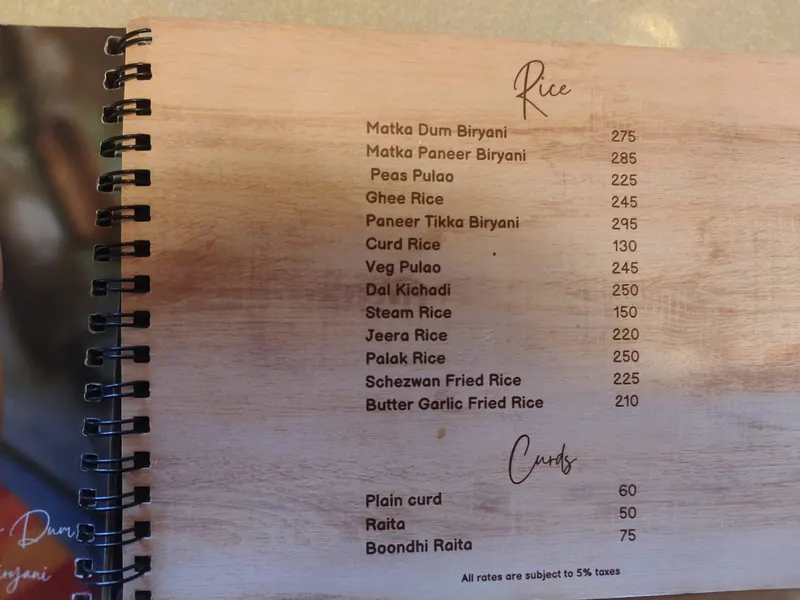 Rice
Matka Dum Biryani 275
Matka Paneer Biryani 285
Peas Pulao 225
Ghee Rice 245
Paneer Tikka Biryani 295
Curd Rice 130
Veg Pulao 245
Dal Kichadi 250
Steam Rice 150
Jeera Rice 220
Palak Rice 250
Schezwan Fried Rice 225
Butter Garlic Fried Rice 210
Curds
Plain curd 60
Raita 50
Boondhi Raita 75
All rates are subject to 5% taxes
Dum